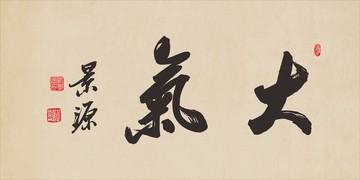 大氣
景源